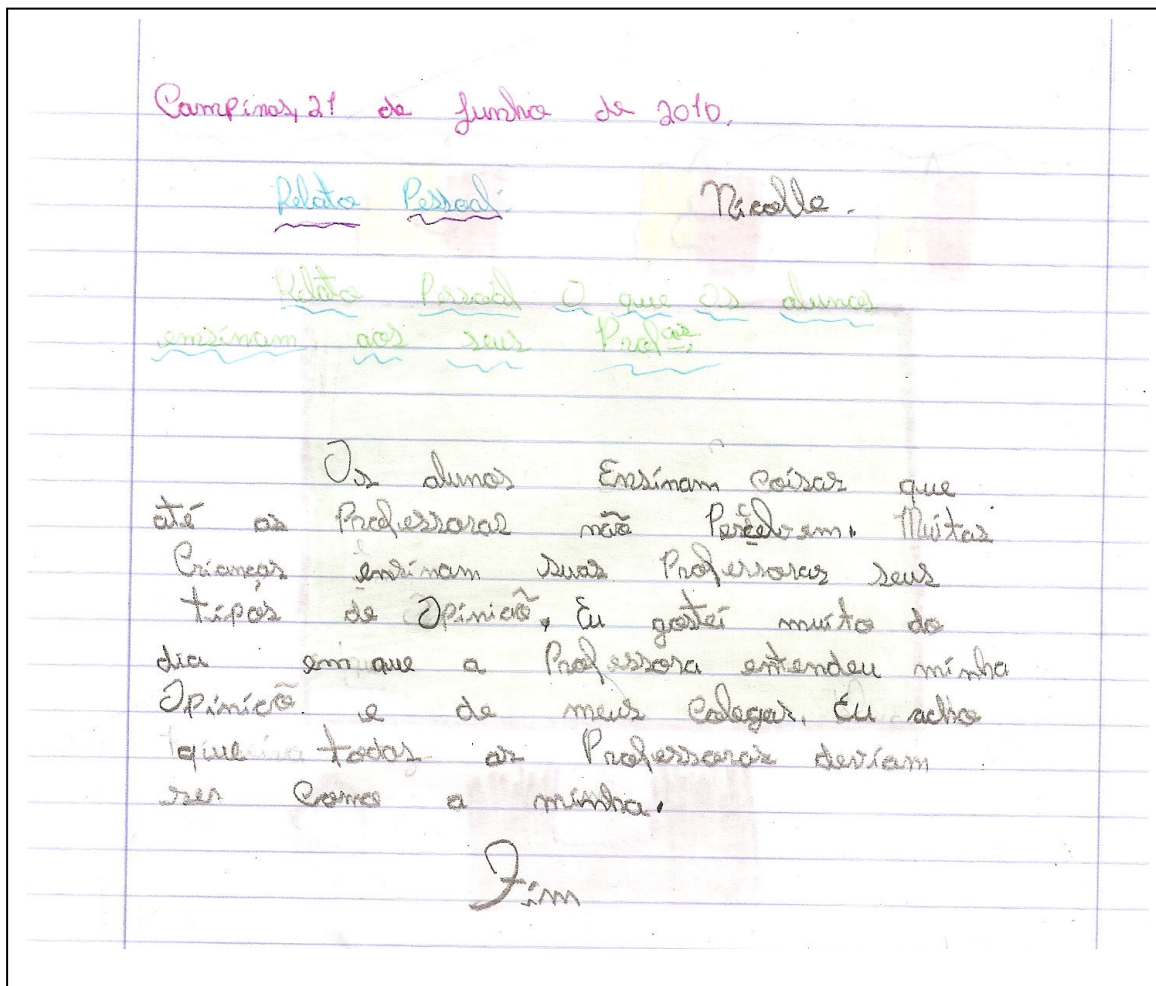 Campinas, 21 de Junho de 2010.
Relato Pessoal. Nicolle.
Relato Pessoal O que Os alunos
ensinam aos seus Profas.
Os alunos Ensinam coisas que
até as Professoras não Percebem. Muitas
Crianças ensinam suas Professoras seus
tipos de Opinião, Eu gostei muito do
dia em que a Professora entendeu minha
Opinião e de meus Colegas. Eu acho
que todas as Professoras deviam
ser Como a minha.
Fim